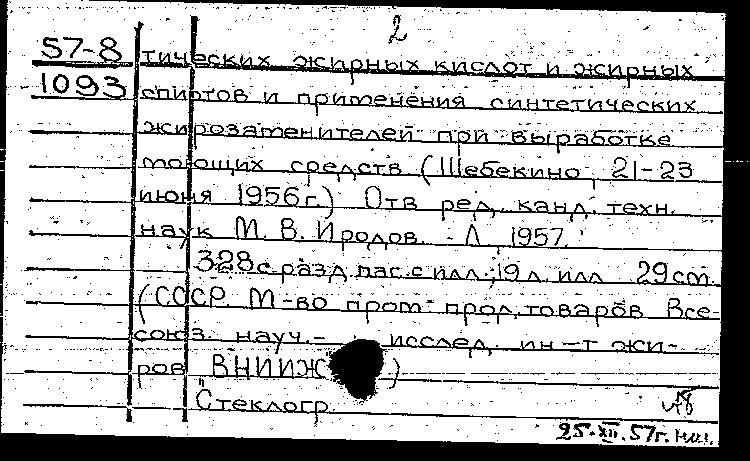 2
57-8
1093
тических жирных кислот и жирных
спиртов и применения синтетических
жирозаменителей при выработке
моющих средств (Шебекино, 21-23
июня 1956г.) Отв. ред. канд. техн.
наук М. В. Иродов. - Л., 1957.
328 с. разд. паг. с илл.; 19 л. илл. 29 см.
(СССР. М-во пром. прод. товаров. Все-
союз. науч.- исслед. ин-т жи-
ров ВНИИЖ )
Стеклогр.
25.XII.57г.